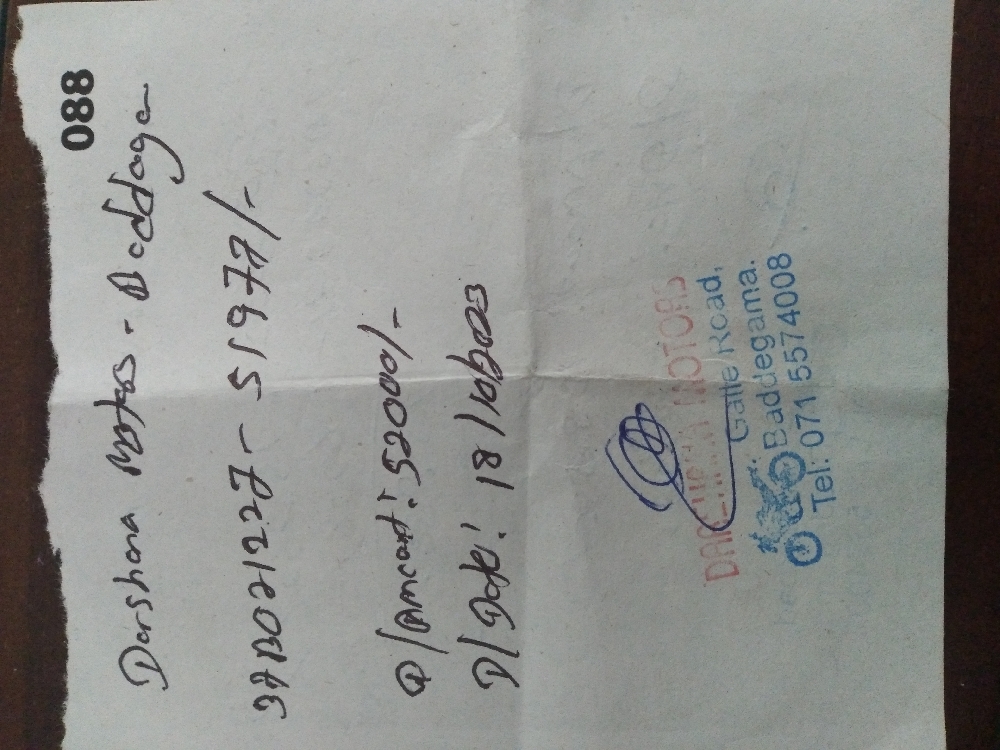 088
Darshana Motors - Baddage
37B021227 - 51977/-
Q/Amount: 52000/-
D/Date: 18/10/2023
DARSHANA MOTORS
Galle Road,
Baddegama.
Tel: 071 5574008